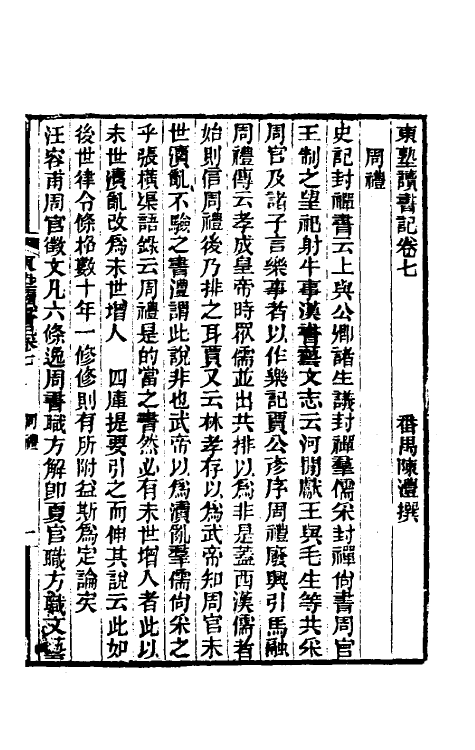 東塾讀書記卷七　　　　　番禺陳澧撰
周禮
史記封禪書云上與公卿諸生議封禪羣儒采封禪尙書周官
王制之望祀射牛事漢書藝文志云河閒獻王與毛生等共采
周官及諸子言樂事者以作樂記賈公彥序周禮廢興引馬融
周禮傳云孝成皇帝時眾儒並出共排以爲非是蓋西漢儒者
始則信周禮後乃排之耳賈又云林孝存以爲武帝知周官末
世瀆亂不驗之書澧謂此說非也武帝以爲瀆亂羣儒尙采之
乎張橫渠語錄云周禮是的當之書然必有末世增入者此以
末世瀆亂改爲末世增入　四庫提要引之而伸其說云此如
後世律令條格數十年一修修則有所附益斯爲定論矣
汪容甫周官徵文凡六條逸周書職方解卽夏官職方職文藝
東塾讀書記卷七　周禮　一